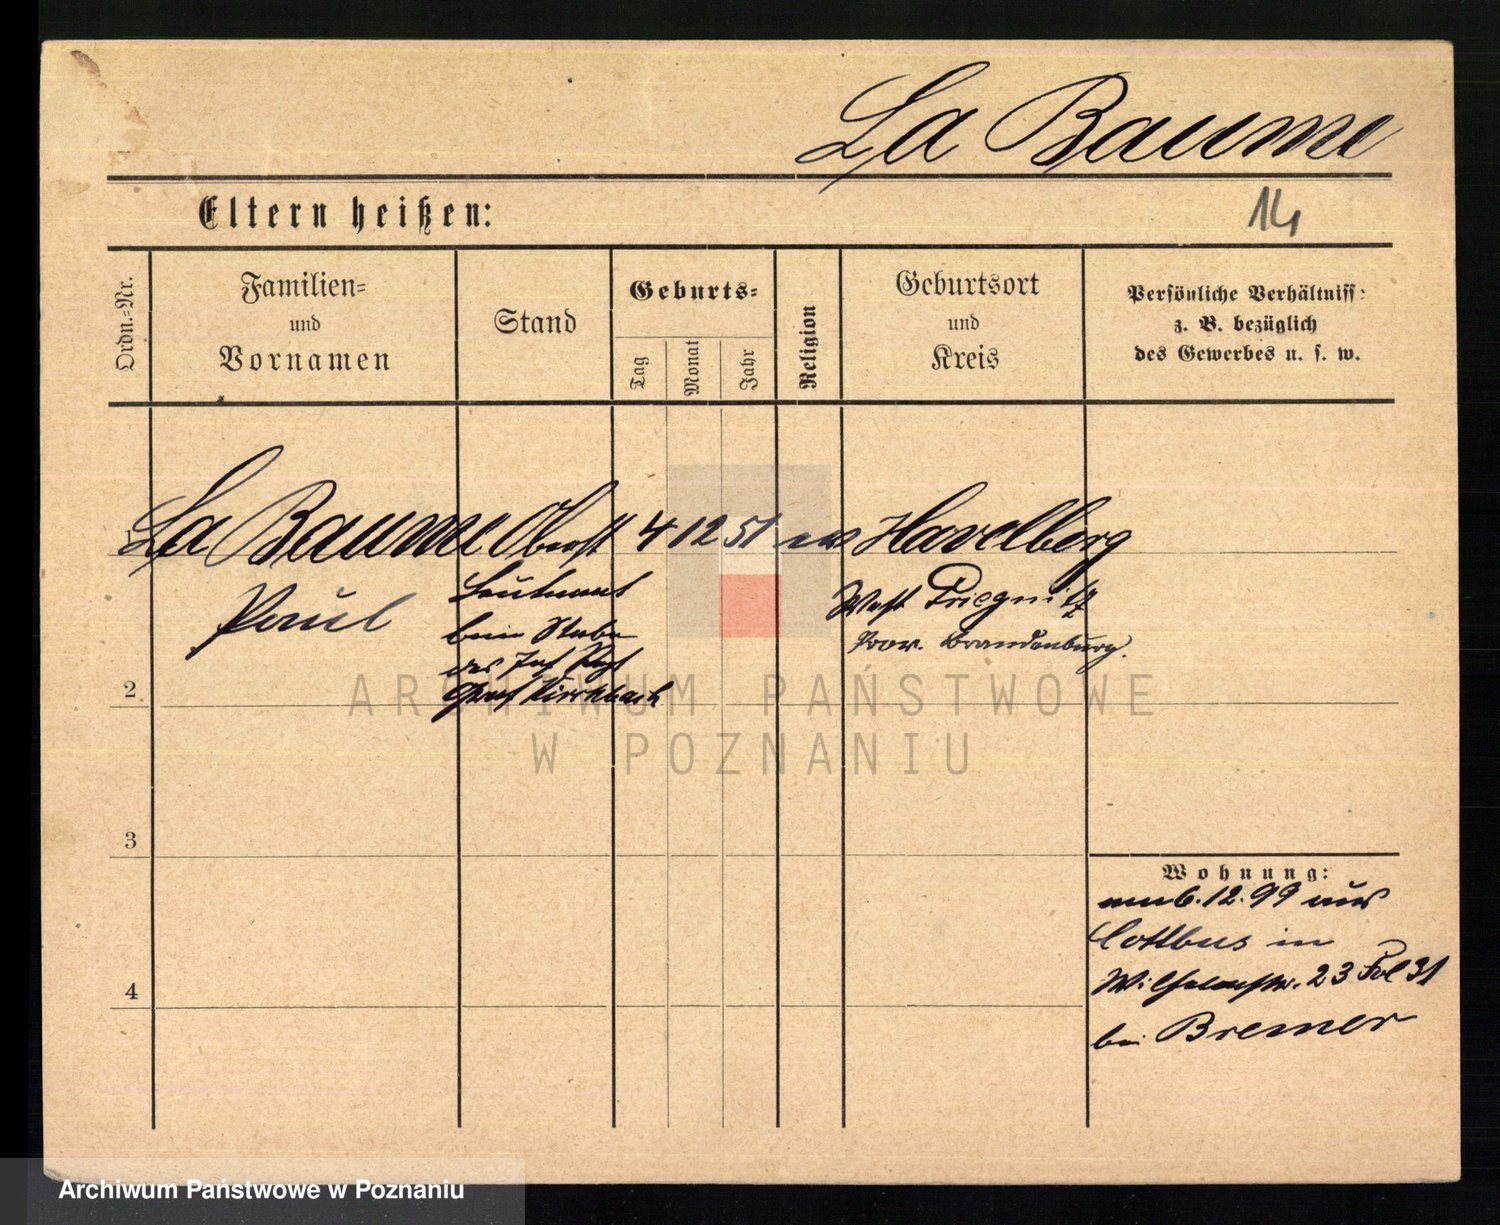 La Baume
Eltern heißen:
14
Ordn.-Nr.
Familien=
und
Vornamen
Stand
Geburts=
Tag
Monat
Jahr
Religion
Geburtsort
und
Kreis
Persönliche Verhältniss:
z. B. bezüglich
des Gewerbes u. s. w.
La Baume Oberst 4 12 51 ev Havelberg
Paul
Leutnant
beim Stabe
des Inf Rgt
Graf Kirchbach
West Priegnitz
Prov. Brandenburg.
2
3
4
Wohnung:
am 6.12.99 aus
Cottbus in
Wilhelmstr. 23 Pol 31
bei Bremer
ARCHIWUM PAŃSTWOWE
W POZNANIU
Archiwum Państwowe w Poznaniu